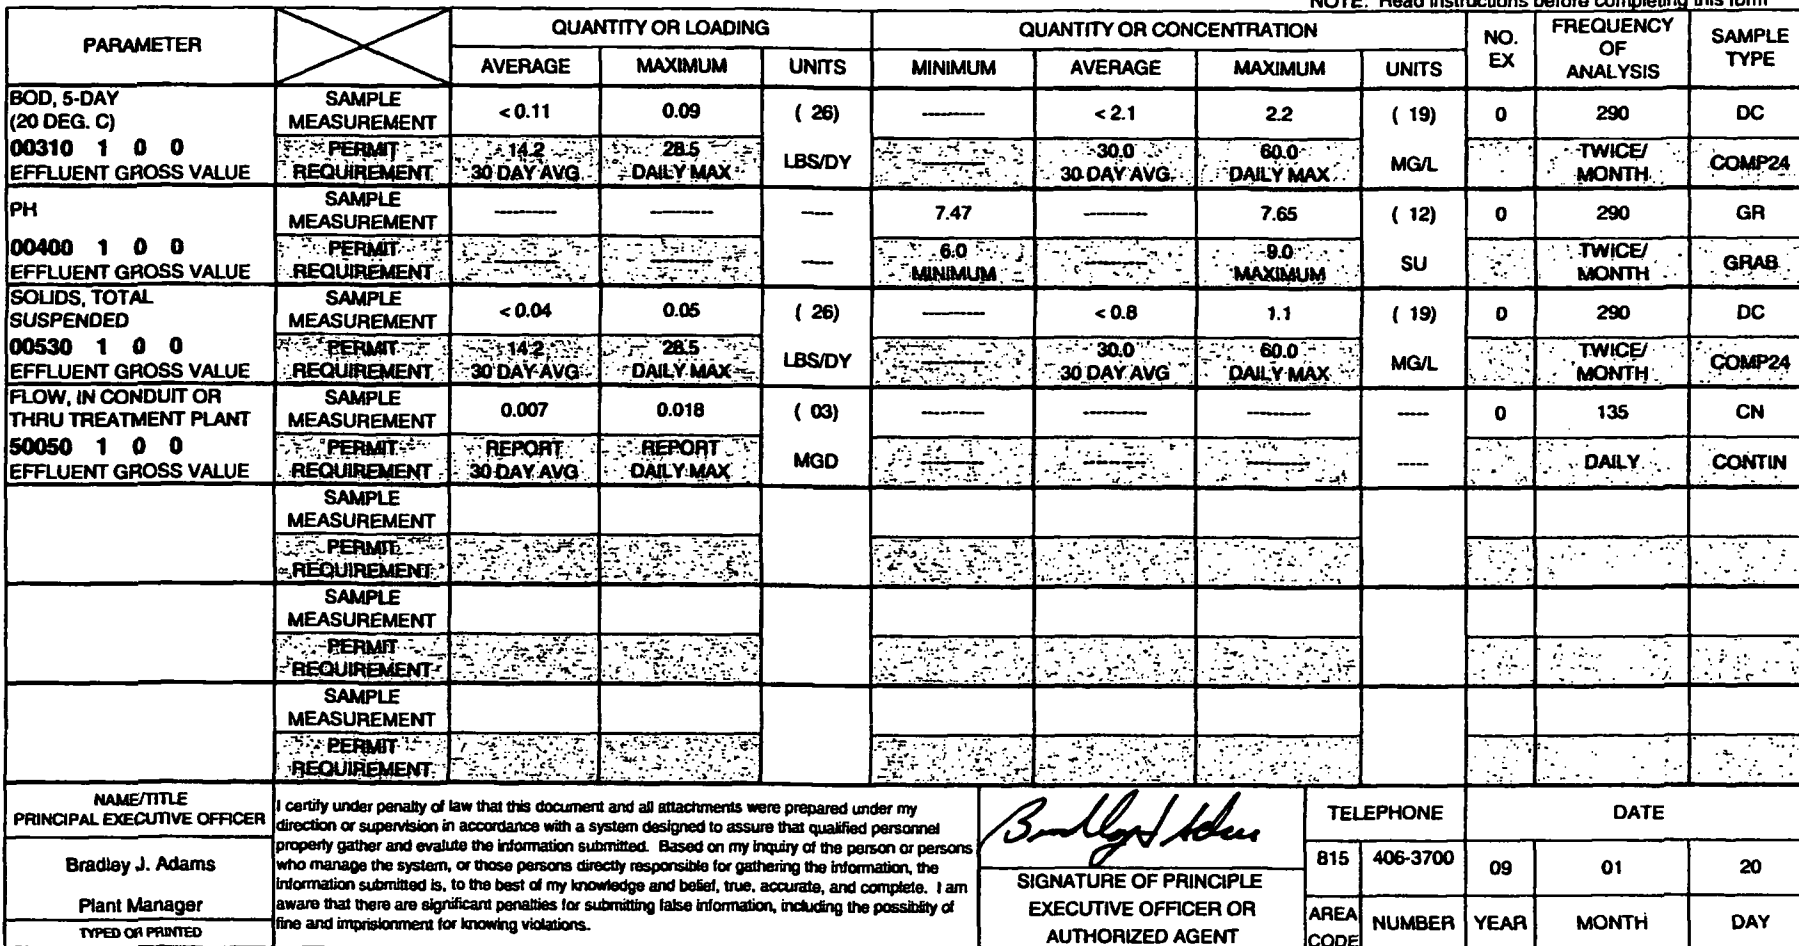 NOTE: Read instructions before completing this form
PARAMETER QUANTITY OR LOADING QUANTITY OR CONCENTRATION NO. EX FREQUENCY OF ANALYSIS SAMPLE TYPE
AVERAGE MAXIMUM UNITS MINIMUM AVERAGE MAXIMUM UNITS
BOD, 5-DAY (20 DEG. C) SAMPLE MEASUREMENT < 0.11 0.09 ( 26) --------- < 2.1 2.2 ( 19) 0 290 DC
00310 1 0 0 EFFLUENT GROSS VALUE PERMIT REQUIREMENT 14.2 30 DAY AVG 28.5 DAILY MAX LBS/DY --------- 30.0 30 DAY AVG 60.0 DAILY MAX MG/L TWICE/ MONTH COMP24
PH SAMPLE MEASUREMENT --------- --------- ----- 7.47 --------- 7.65 ( 12) 0 290 GR
00400 1 0 0 EFFLUENT GROSS VALUE PERMIT REQUIREMENT --------- --------- ----- 6.0 MINIMUM --------- 9.0 MAXIMUM SU TWICE/ MONTH GRAB
SOLIDS, TOTAL SUSPENDED SAMPLE MEASUREMENT < 0.04 0.05 ( 26) --------- < 0.8 1.1 ( 19) 0 290 DC
00530 1 0 0 EFFLUENT GROSS VALUE PERMIT REQUIREMENT 14.2 30 DAY AVG 28.5 DAILY MAX LBS/DY --------- 30.0 30 DAY AVG 60.0 DAILY MAX MG/L TWICE/ MONTH COMP24
FLOW, IN CONDUIT OR THRU TREATMENT PLANT SAMPLE MEASUREMENT 0.007 0.018 ( 03) --------- --------- --------- ----- 0 135 CN
50050 1 0 0 EFFLUENT GROSS VALUE PERMIT REQUIREMENT REPORT 30 DAY AVG REPORT DAILY MAX MGD --------- --------- --------- ----- DAILY CONTIN
SAMPLE MEASUREMENT
PERMIT REQUIREMENT
SAMPLE MEASUREMENT
PERMIT REQUIREMENT
SAMPLE MEASUREMENT
PERMIT REQUIREMENT
NAME/TITLE
PRINCIPAL EXECUTIVE OFFICER
Bradley J. Adams
Plant Manager
TYPED OR PRINTED
I certify under penalty of law that this document and all attachments were prepared under my
direction or supervision in accordance with a system designed to assure that qualified personnel
properly gather and evalute the information submitted. Based on my inquiry of the person or persons
who manage the system, or those persons directly responsible for gathering the information, the
information submitted is, to the best of my knowledge and belief, true, accurate, and complete. I am
aware that there are significant penalties for submitting false information, including the possiblity of
fine and imprisionment for knowing violations.
Bradley J Adams
SIGNATURE OF PRINCIPLE
EXECUTIVE OFFICER OR
AUTHORIZED AGENT
TELEPHONE DATE
815 406-3700 09 01 20
AREA CODE NUMBER YEAR MONTH DAY